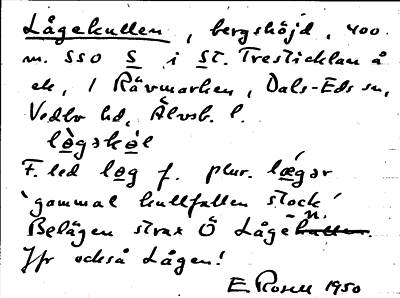 Lågekullen, bergshöjd, 400
m. SSO S i St. Tresticklan å
ek, i Rävmarken, Dals-Eds sn,
Vedbo hd, Älvsb. l.
lògəkól
F. led log f. plur. lǽgər
'gammal kullfallen stock'
Belägen strax Ö Lågen.
Jfr också Lågen!
E. Rosell 1950